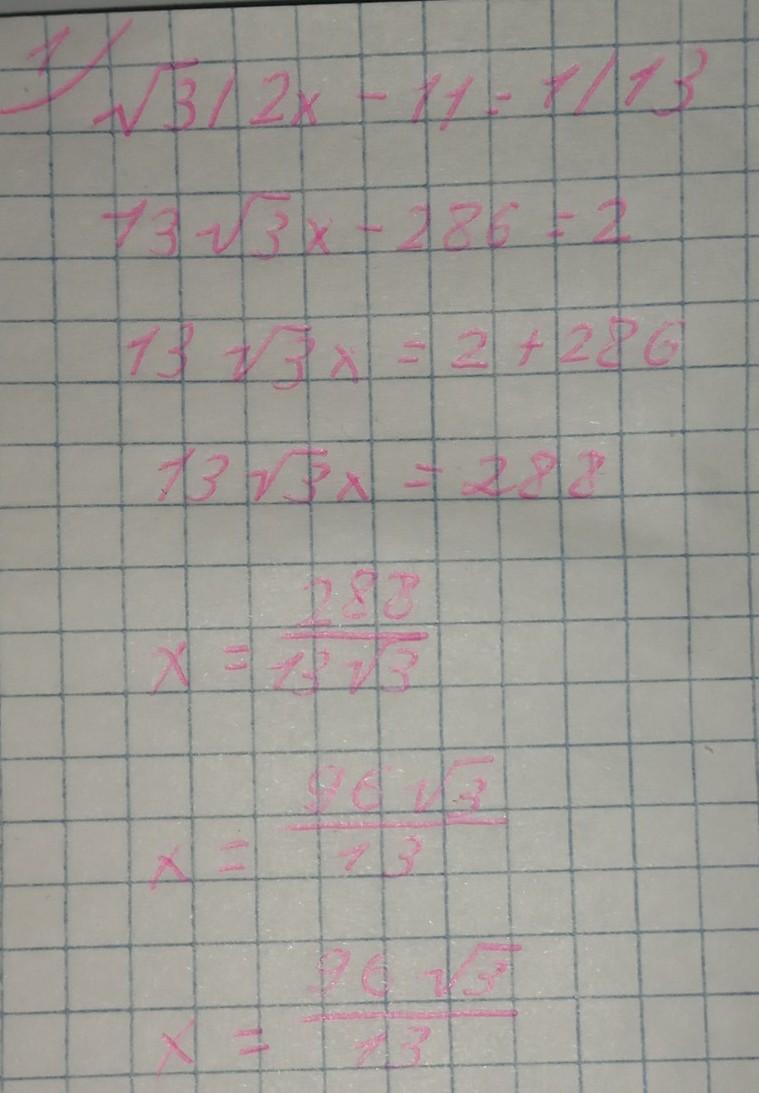 1/
√3/2x - 11 = 1/13
13√3x - 286 = 2
13√3x = 2 + 286
13√3x = 288
x = 288/13√3
x = 96√3/13
x = 96√3/13